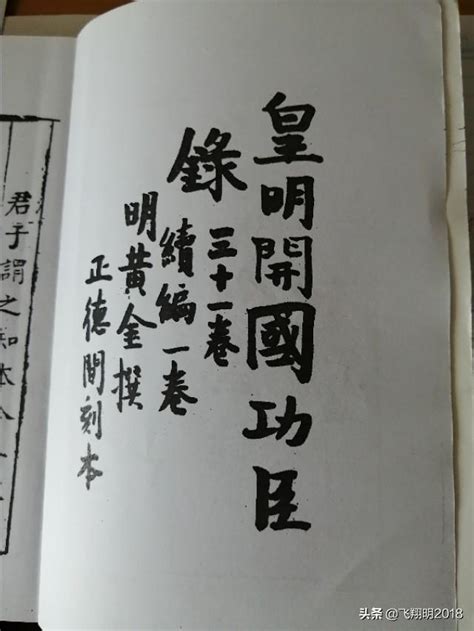 皇明開國功臣
錄
三十一卷
續編一卷
明黃金撰
正德間刻本
君子謂之知本
头条 @飞翔明2018